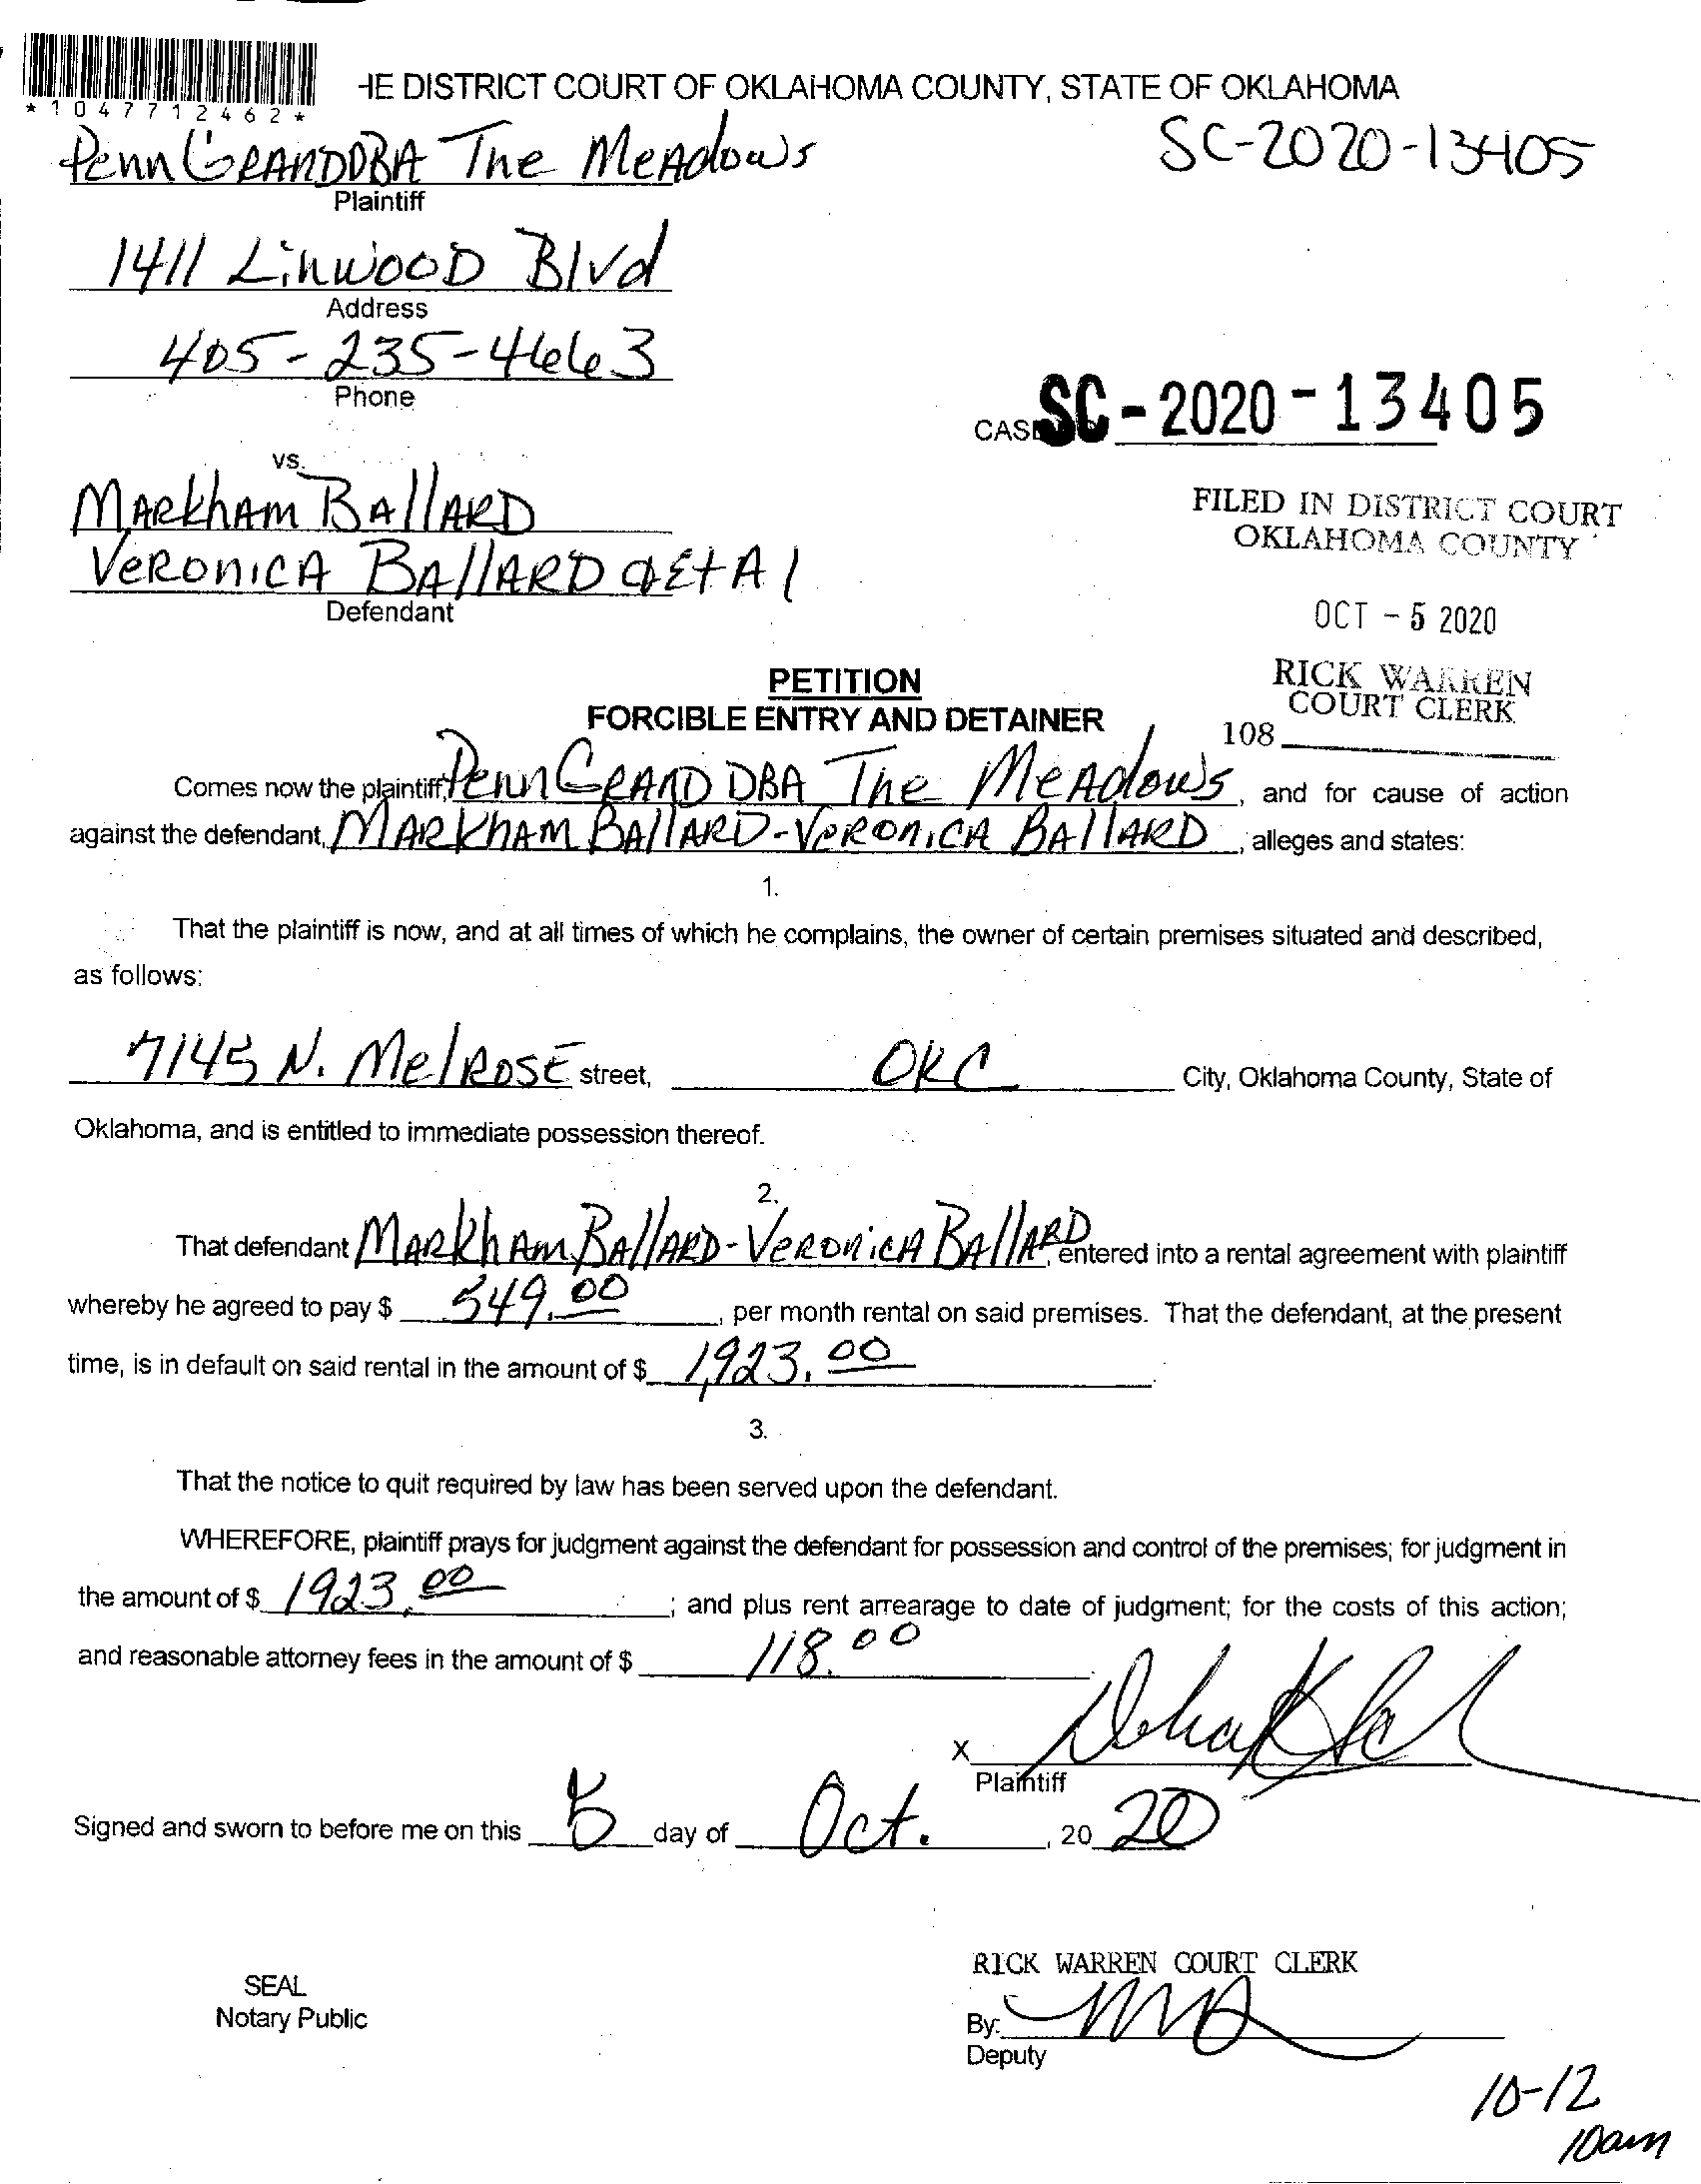 *1047712462*
HE DISTRICT COURT OF OKLAHOMA COUNTY, STATE OF OKLAHOMA
Penn GRAND DBA The MeAdows
SC-2020-13405
Plaintiff
1411 LinwOOD Blvd
Address
405-235-4663
Phone
CASE SC-2020-13405
vs.
MARkhAm BAllARD
VeRonicA BAllARD et Al
Defendant
FILED IN DISTRICT COURT
OKLAHOMA COUNTY
OCT - 5 2020
RICK WARREN
COURT CLERK
108
PETITION
FORCIBLE ENTRY AND DETAINER
Comes now the plaintiff, Penn GRAND DBA The MeAdows, and for cause of action
against the defendant, MARKhAM BAllARD-VeRonicA BAllARD, alleges and states:
1.
That the plaintiff is now, and at all times of which he complains, the owner of certain premises situated and described,
as follows:
7145 N. MelROSE street, OKC City, Oklahoma County, State of
Oklahoma, and is entitled to immediate possession thereof.
2.
That defendant MARkhAm BAllARD-VeRonicA BAllARD, entered into a rental agreement with plaintiff
whereby he agreed to pay $ 549.00, per month rental on said premises. That the defendant, at the present
time, is in default on said rental in the amount of $ 1,923.00.
3.
That the notice to quit required by law has been served upon the defendant.
WHEREFORE, plaintiff prays for judgment against the defendant for possession and control of the premises; for judgment in
the amount of $ 1923.00; and plus rent arrearage to date of judgment; for the costs of this action;
and reasonable attorney fees in the amount of $ 118.00
X
Plaintiff
Signed and sworn to before me on this 5 day of Oct., 20 20
SEAL
Notary Public
RICK WARREN COURT CLERK
By:
Deputy
10-12
10am